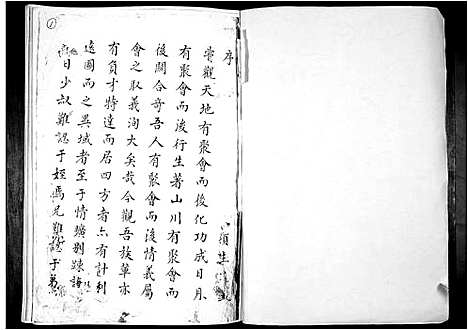 序
嘗觀天地有聚會而後化功成日月
有聚會而後行生著山川有聚會而
後開合奇吾人有聚會而後情義屬
會之取義洵大矣哉今觀吾族單亦
有負才特達而居四方者亦有計利
遠圖而之異域者至于情壙別踈諸
日少叔難認于姪馮兄難于弟
生
1